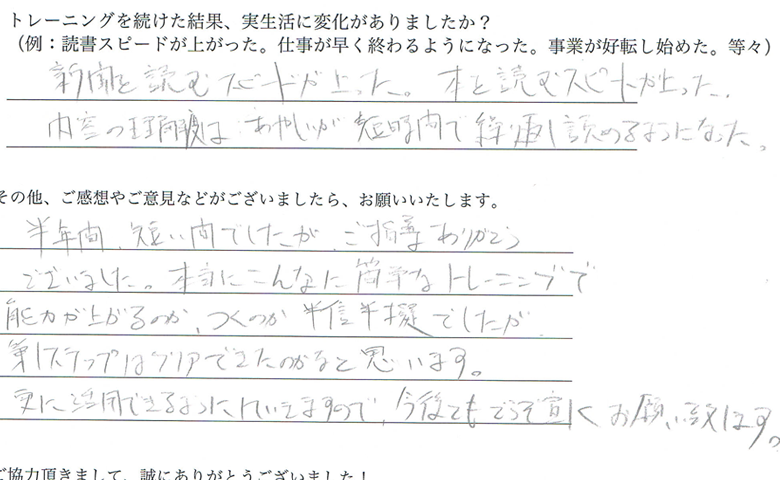 トレーニングを続けた結果、実生活に変化がありましたか？
（例：読書スピードが上がった。仕事が早く終わるようになった。事業が好転し始めた。等々）
新聞を読むスピードが上った。本を読むスピードが上った。
内容の理解度はあやしいが短時間で繰り返し読めるようになった。
その他、ご感想やご意見などがございましたら、お願いいたします。
半年間、短い間でしたが、ご指導ありがとう
ございました。本当にこんなに簡単なトレーニングで
能力が上がるのか、つくのか半信半疑でしたが
第1ステップはクリアできたのかなと思います。
更に活用できるようにしていきますので、今後ともどうぞ宜しくお願い致します。
ご協力頂きまして、誠にありがとうございました！